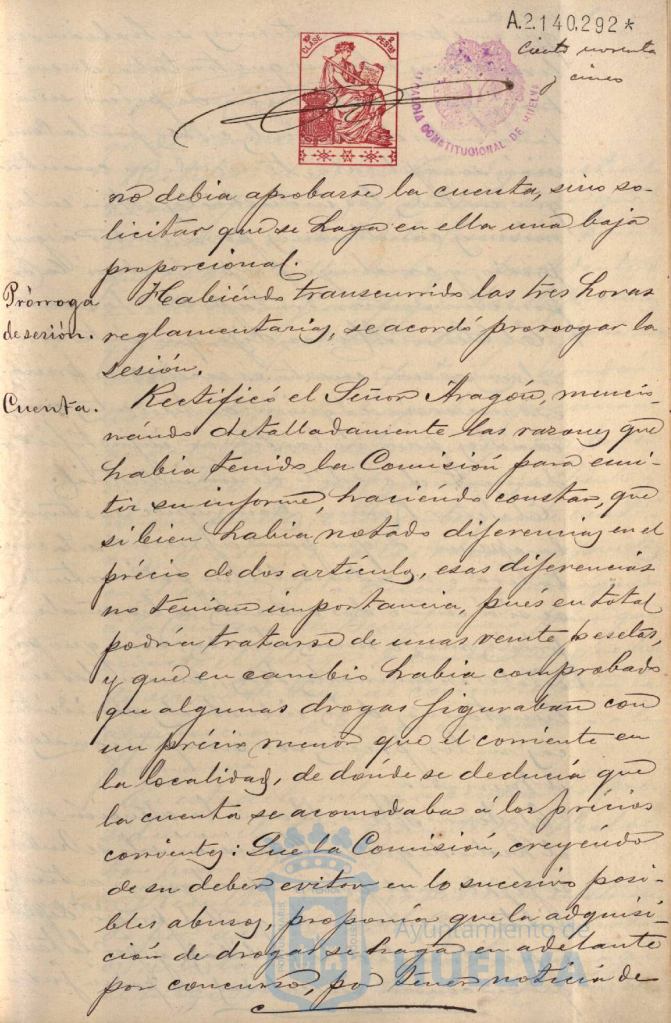 A.2.140.292*
ciento noventa
y cinco
10ª CLASE 2 PESETAS
ALCALDIA CONSTITUCIONAL DE HUELVA
no debia aprobarse la cuenta, sino so-
licitar que se haga en ella una baja
proporcional.
Prórroga
de sesión.
Habiéndo transcurrido las tres horas
reglamentarias, se acordó prorrogar la
sesión.
Cuenta.
Rectificó el Señor Aragón, mencio-
nándo detalladamente las razones que
habia tenido la Comisión para emi-
tir su informe, haciéndo constar, que
si bien habia notado diferencias en el
précio de dos artículos, esas diferencias
no tenian importancia, pués en total
podría tratarse de unas veinte pesetas,
y que en cambio habia comprobado
que algunas drogas figuraban con
un précio menor que el corriente en
la localidad, de dónde se deducia que
la cuenta se acomodaba á los précios
corrientes: Que la Comisión, creyéndo
de su deber evitar en lo sucesivo posi-
bles abusos, proponía que la adquisi-
ción de drogas se haga en adelante
por concurso, por tener noticia de
Ayuntamiento de
HUELVA